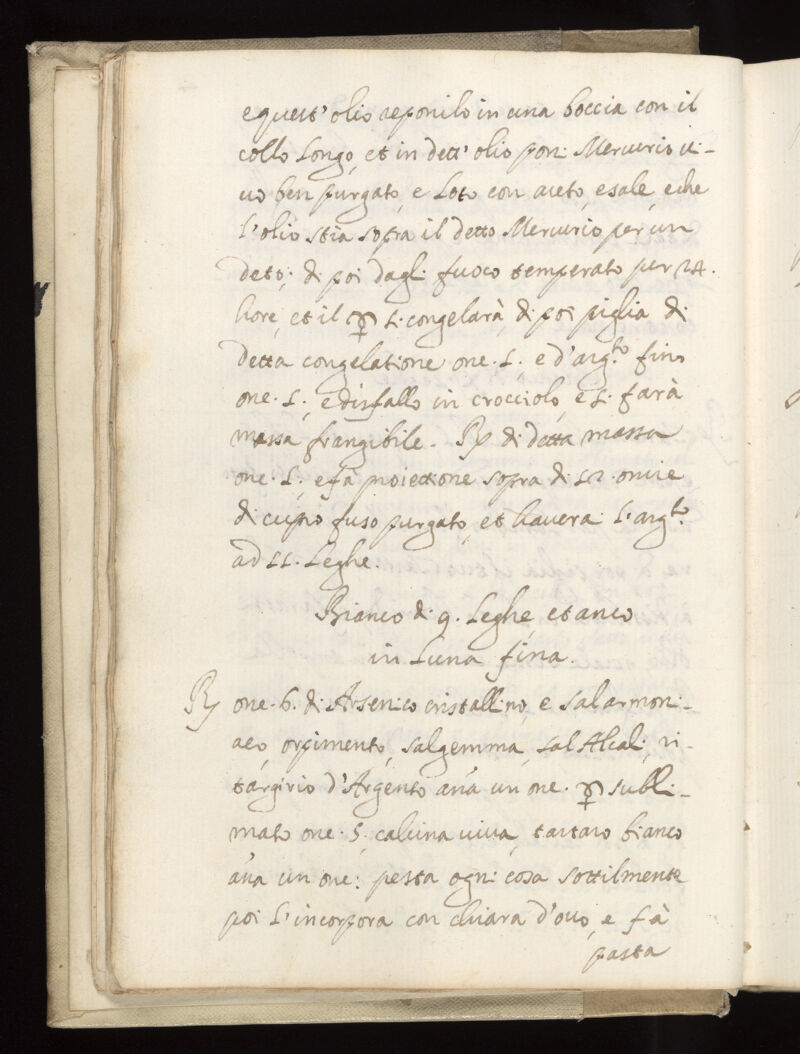 e quest'olio reponilo in una boccia con il
collo longo, et in dett'olio poni Mercurio vi-
vo ben purgato, e loto con aceto, e sale, e che
l'olio stia sopra il detto Mercurio per un
deto; di poi dagli fuoco temperato per 24.
hore, et il ☿ s. congelarà, di poi piglia di
detta congelatione one. 1., e d'arg.to fino
one. 1., e disfallo in crocciolo, e s. farà
massa frangibile. ℞ di detta massa
one. 1., e fà proiettione sopra di 12. oncie
di cupro fuso purgato, et haverai l'arg.to
ad 11. leghe.
Bianco di 9. leghe, et anco
in Luna fina.
℞ one. 6. di Arsenico cristallino, e sal armoni-
aco, orpimento, salgemma, sal Alcali, ri-
targirio d'Argento aña un one. ☿ subli-
mato one. 5. calcina viva, tartaro bianco
aña un one: pesta ogni cosa sottilmente
poi l'incorpora con chiara d'ovo, e fà
pasta